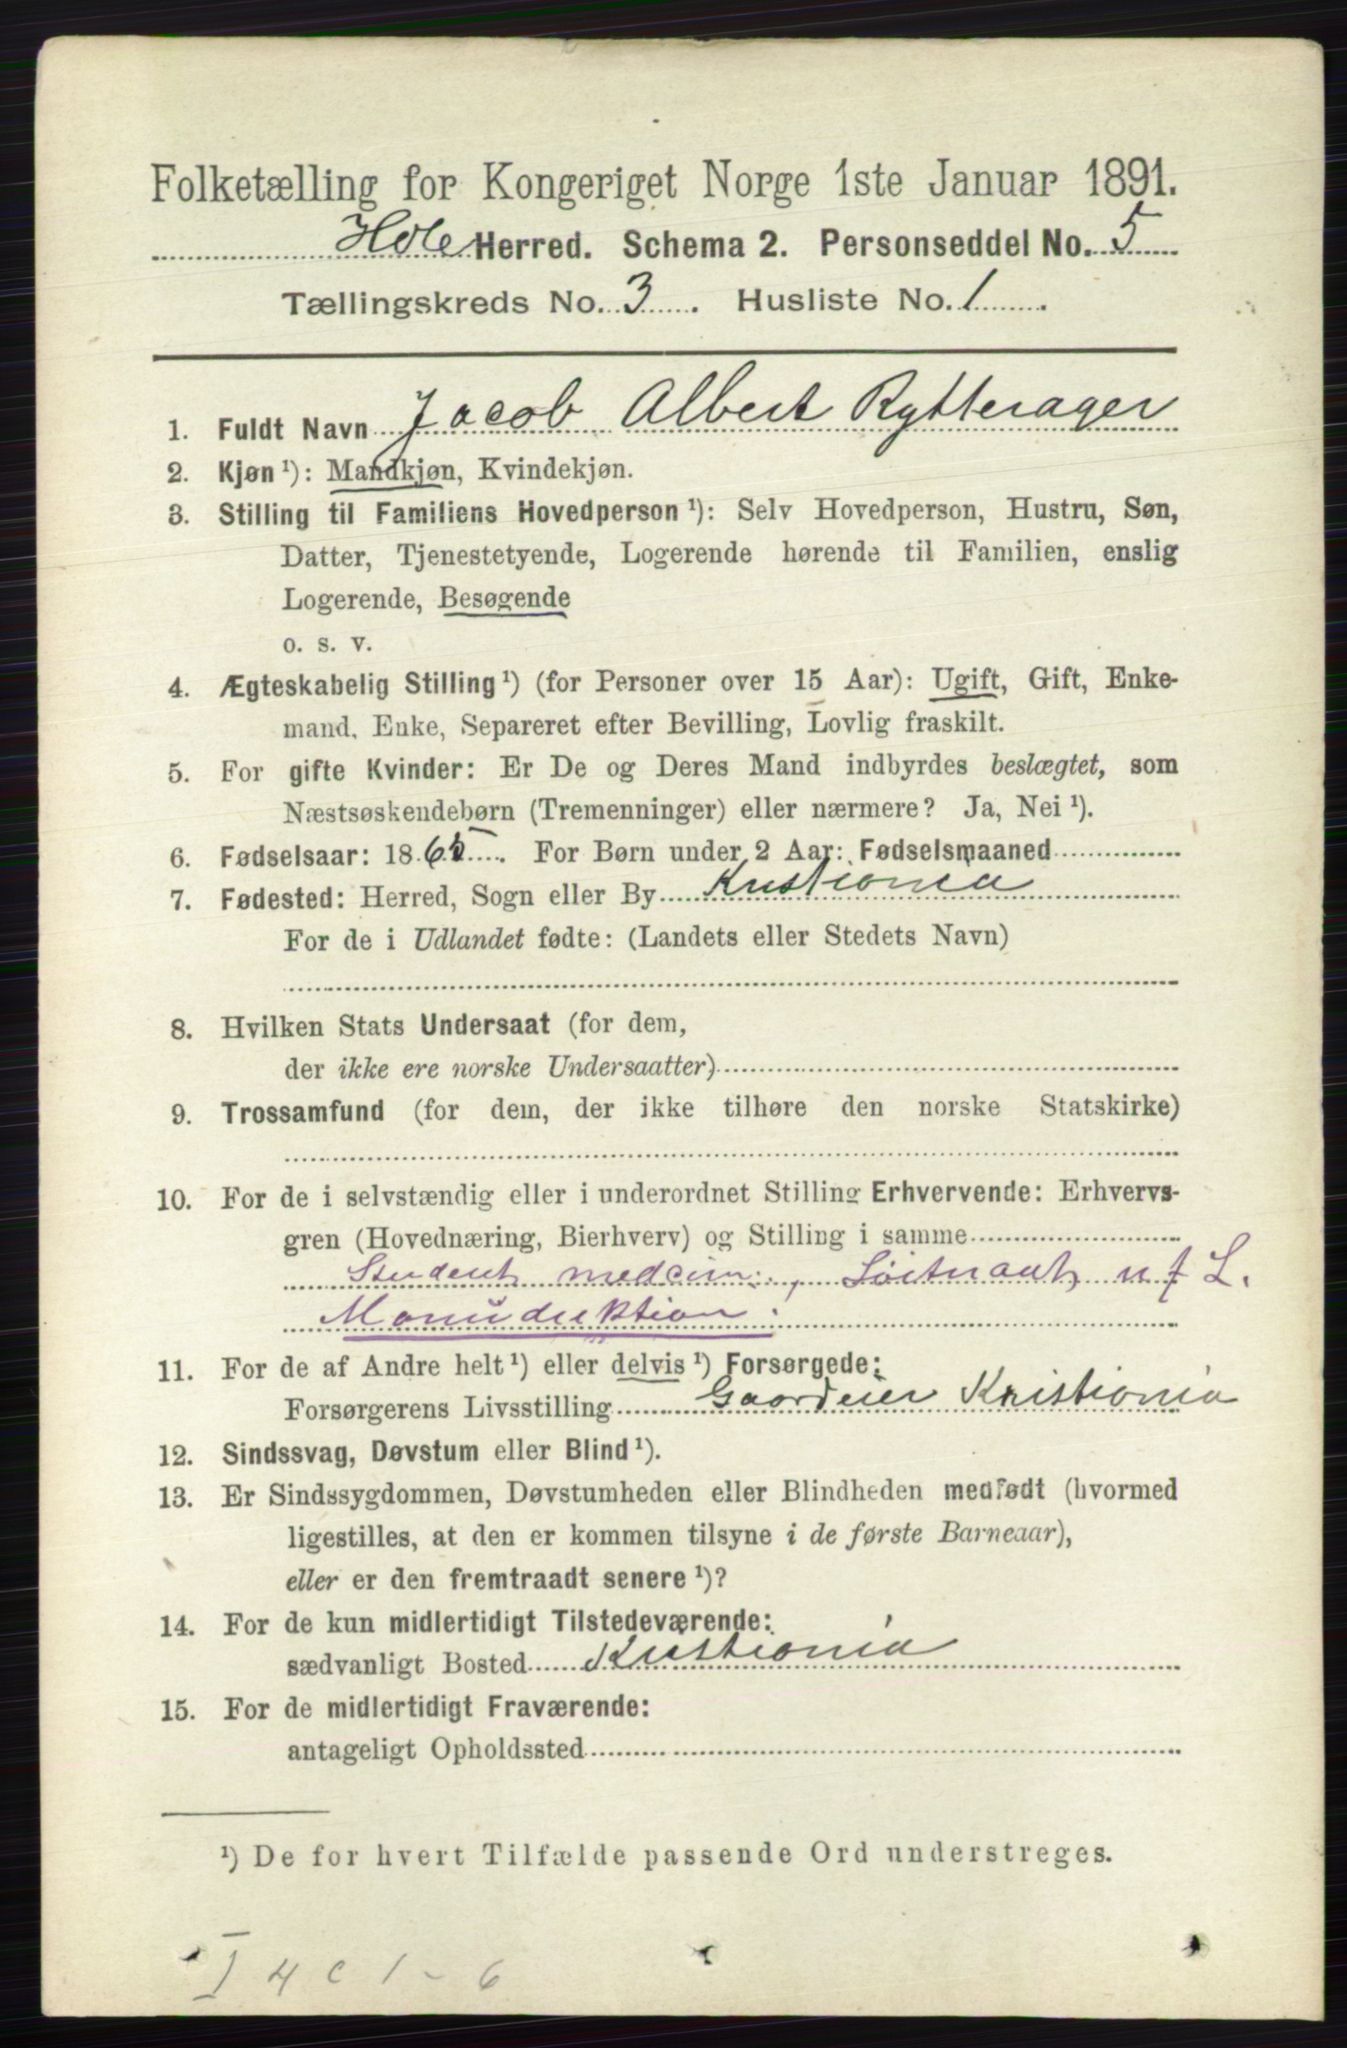 Folketælling for Kongeriget Norge 1ste Januar 1891.
Hole Herred. Schema 2. Personseddel No. 5
Tællingskreds No. 3. Husliste No. 1.
1. Fuldt Navn Jacob Albert Rytterager
2. Kjøn¹): Mandkjøn, Kvindekjøn.
3. Stilling til Familiens Hovedperson¹): Selv Hovedperson, Hustru, Søn,
Datter, Tjenestetyende, Logerende hørende til Familien, enslig
Logerende, Besøgende
o. s. v.
4. Ægteskabelig Stilling¹) (for Personer over 15 Aar): Ugift, Gift, Enke-
mand, Enke, Separeret efter Bevilling, Lovlig fraskilt.
5. For gifte Kvinder: Er De og Deres Mand indbyrdes beslægtet, som
Næstsøskendebørn (Tremenninger) eller nærmere? Ja, Nei¹).
6. Fødselsaar: 1865. For Børn under 2 Aar: Fødselsmaaned
7. Fødested: Herred, Sogn eller By Kristiania
For de i Udlandet fødte: (Landets eller Stedets Navn)
8. Hvilken Stats Undersaat (for dem,
der ikke ere norske Undersaatter)
9. Trossamfund (for dem, der ikke tilhøre den norske Statskirke)
10. For de i selvstændig eller i underordnet Stilling Erhvervende: Erhvervs-
gren (Hovednæring, Bierhverv) og Stilling i samme
Student medcin:, Løitnant, n f L.
Manuduktion.
11. For de af Andre helt¹) eller delvis¹) Forsørgede:
Forsørgerens Livsstilling Gaardeier Kristiania
12. Sindssvag, Døvstum eller Blind¹).
13. Er Sindssygdommen, Døvstumheden eller Blindheden medfødt (hvormed
ligestilles, at den er kommen tilsyne i de første Barneaar),
eller er den fremtraadt senere¹)?
14. For de kun midlertidigt Tilstedeværende:
sædvanligt Bosted Kristiania
15. For de midlertidigt Fraværende:
antageligt Opholdssted
¹) De for hvert Tilfælde passende Ord understreges.
I 4 c 1 - 6